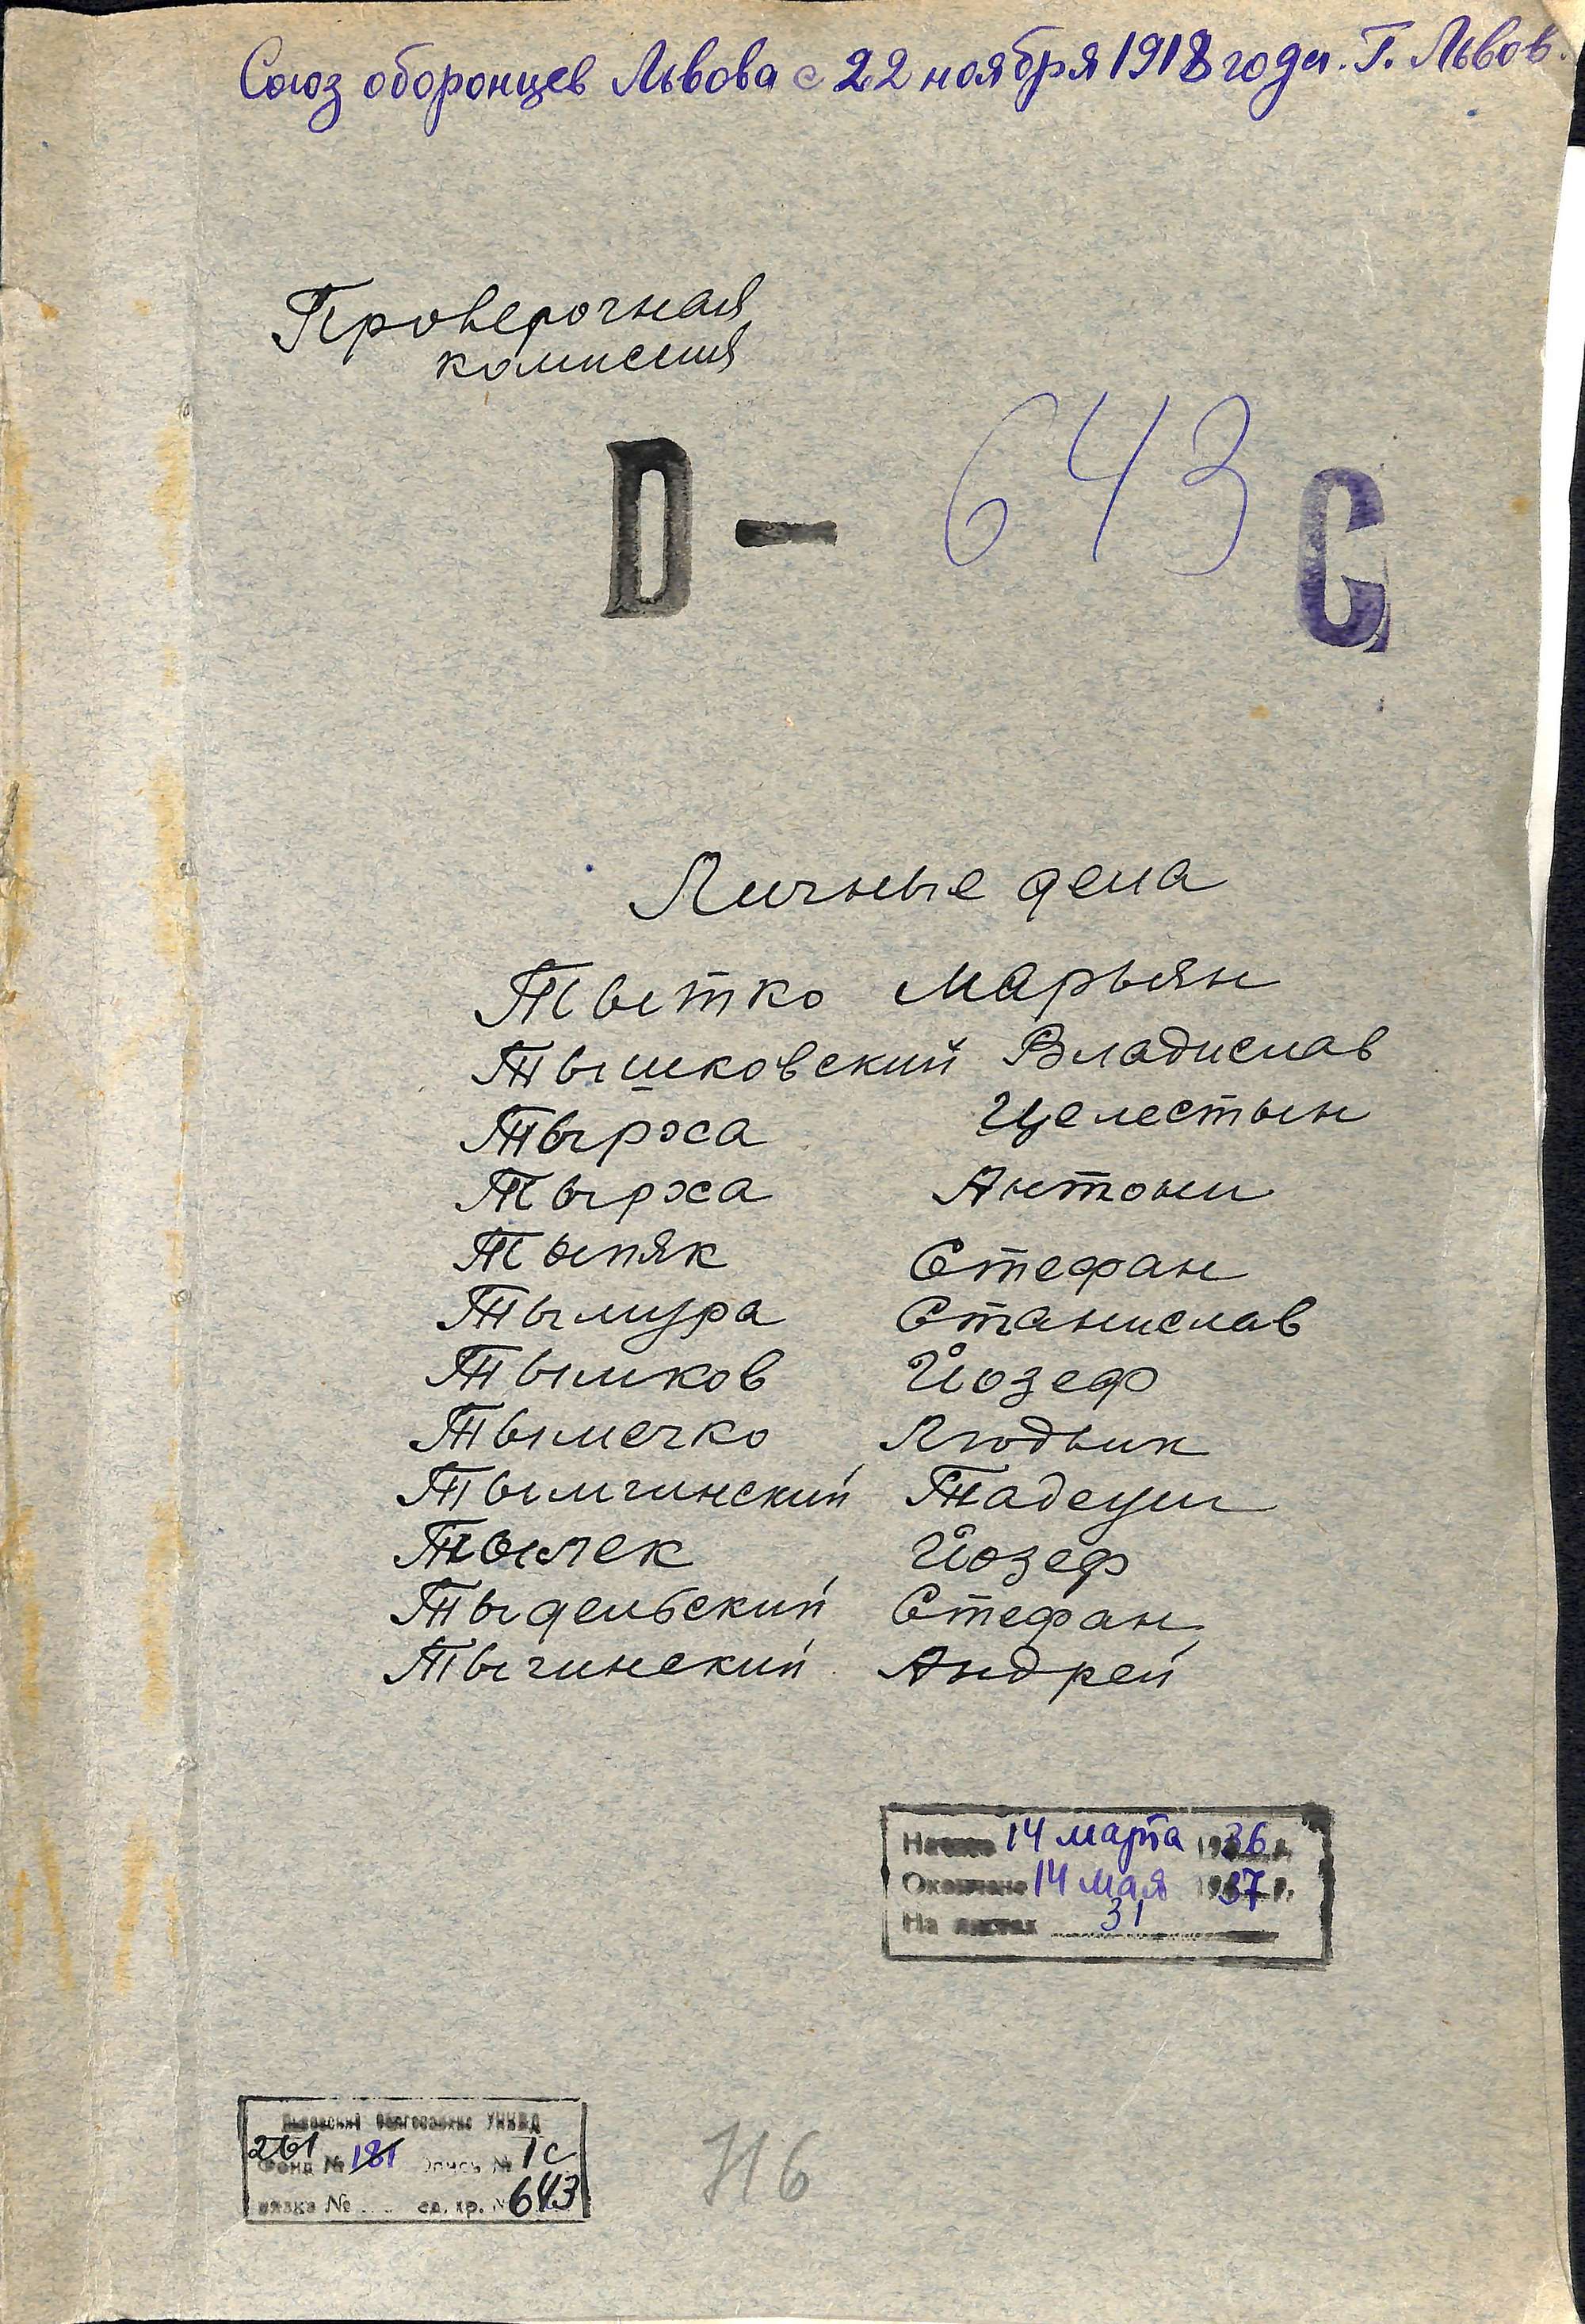 Союз оборонцев Львова с 22 ноября 1918 года. Г. Львов.
Проверочная
комиссия
D — 643 С
Личные дела
Тытко Марьян
Тышковский Владислав
Тырса Целестын
Тырха Антони
Тыпяк Стефан
Тымура Станислав
Тымков Йозеф
Тымечко Людвик
Тымчинский Тадеуш
Тылек Йозеф
Тыдельский Стефан
Тычинский Андрей
Начато 14 марта 1936 г.
Окончено 14 мая 1937 г.
На листах 31
Львовский Облгосархив УНКВД
261
Фонд № 181 Опись № 1с
вязка № ед. хр. № 643
716